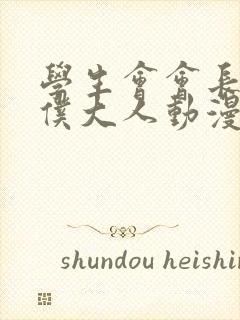 學生會會長
僕大人動漫
shundou heishin